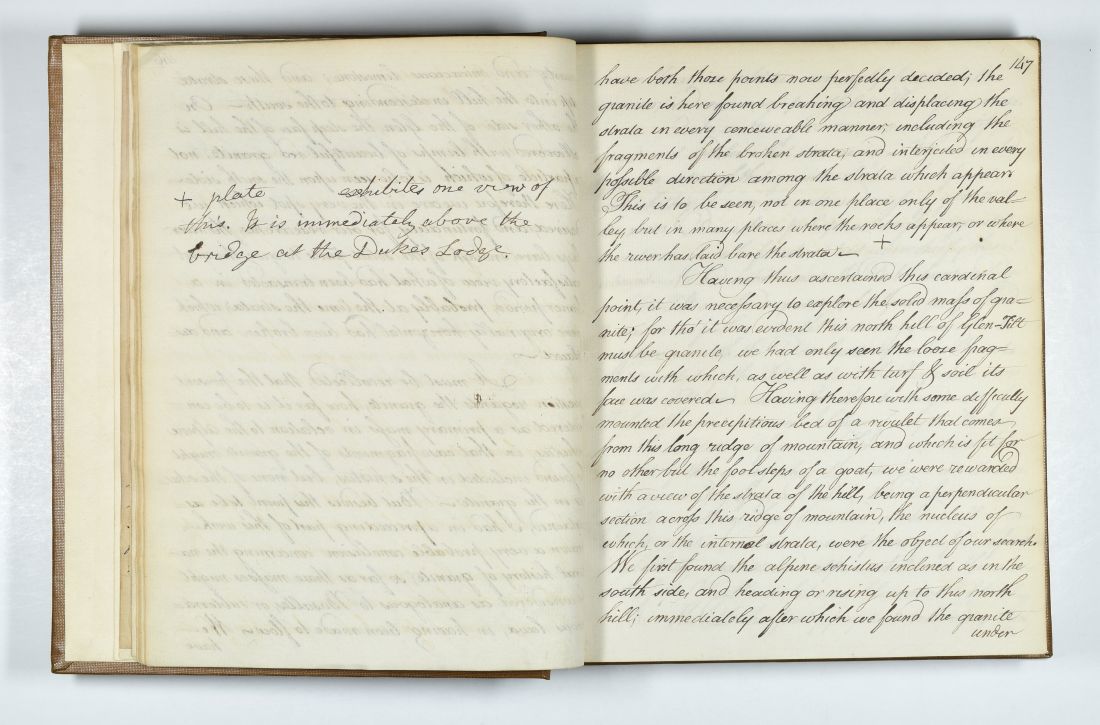 + plate exhibites one view of
this. It is immediately above the
bridge at the Dukes Lodge.
147
have both those points now perfectly decided; the
granite is here found breaking and displacing the
strata in every conceiveable manner, including the
fragments of the broken strata, and interjected in every
possible direction among the strata which appear.
This is to be seen, not in one place only of the val=
ley, but in many places where the rocks appear, or where
the river has laid bare the strata +
Having thus ascertained this cardinal
point, it was necessary to explore the solid mass of gra=
nite; for tho' it was evident this north hill of Glen-Tilt
must be granite, we had only seen the loose frag=
ments with which, as well as with turf & soil its
face was covered. Having therefore with some difficulty
mounted the precipitious bed of a rivulet that comes
from this long ridge of mountain, and which is fit for
no other but the foot steps of a goat, we were rewarded
with a view of the strata of the hill, being a perpendicular
section across this ridge of mountain, the nucleus of
which, or the internal strata, were the object of our search.
We first found the alpine schistus inclined as in the
south side, and heading or rising up to this north
hill; immediately after which we found the granite
under